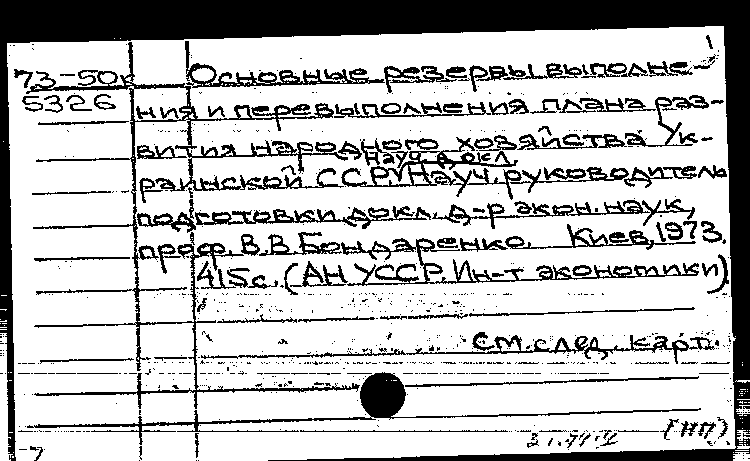 1
73-50к Основные резервы выполне-
5326 ния и перевыполнения плана раз-
вития народного хозяйства Ук-
науч. докл.
раинской ССР. Науч. руководитель
подготовки докл. д-р экон. наук,
проф. В.В. Бондаренко. Киев, 1973.
415с. (АН УССР. Ин-т экономики)
См. след. карт.
(НП)